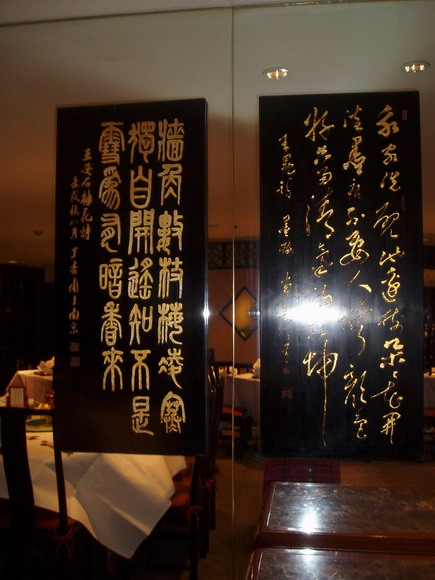 我家洗硯池邊樹朵朵花開
淡墨痕不要人誇顏色
好只留清氣滿乾坤
王冕詩墨梅
牆角數枝梅凌寒
獨自開遙知不是
雪為有暗香來
王安石梅花詩
壬戌秋八月丁南京